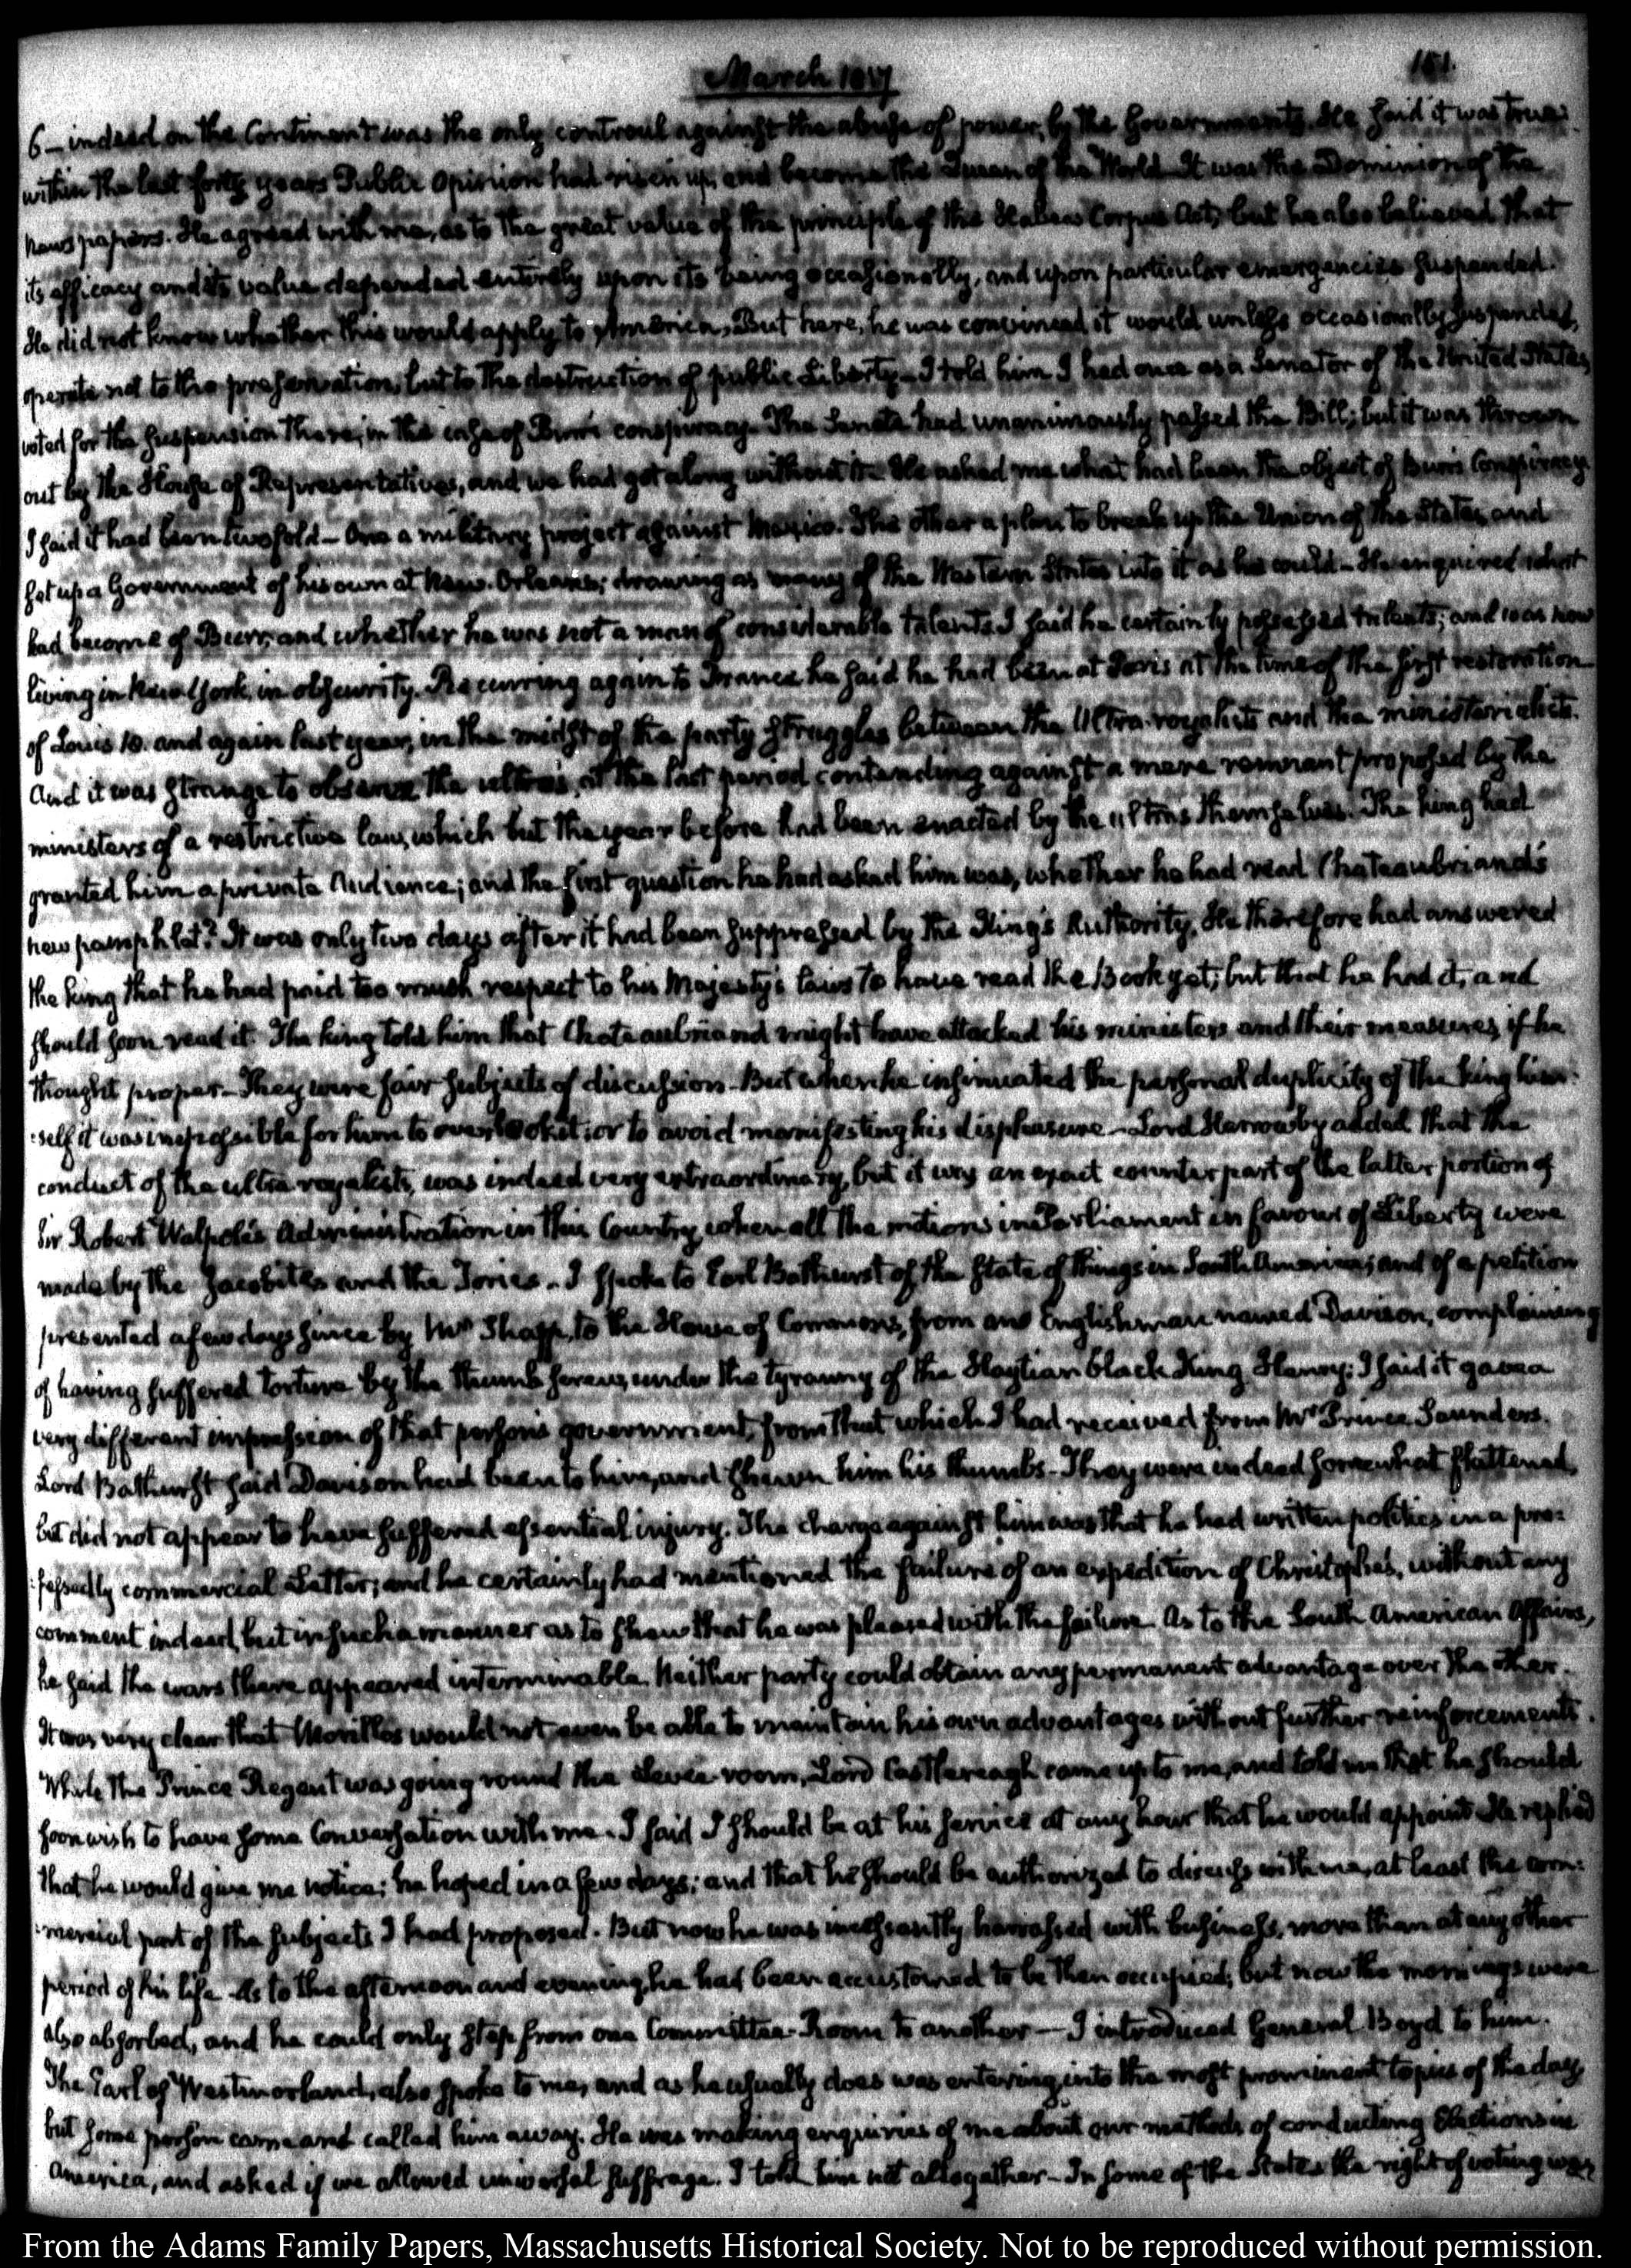 March 1817
151.
6 — indeed on the Continent was the only controul against the abuse of power, by the Governments. He said it was true
within the last forty years Public Opinion had risen up, and become the Queen of the World — It was the Dominion of the
newspapers. He agreed with me, as to the great value of the principle of the Habeas Corpus Act; but he also believed that
its efficacy and its value depended entirely upon its being occasionally, and upon particular emergencies suspended.
He did not know whether this would apply to America, But here, he was convinced it would unless occasionally suspended,
operate not to the preservation, but to the destruction of public Liberty — I told him I had once as a Senator of the United States,
voted for the suspension there, in the case of Burr's conspiracy. The Senate had unanimously passed the Bill; but it was thrown
out by the House of Representatives, and we had got along without it. He asked me what had been the object of Burr's Conspiracy
I said it had been twofold — One a military project against Mexico. The other a plan to break up the Union of the States, and
set up a Government of his own at New-Orleans; drawing as many of the Western States into it as he could — He enquired what
had become of Burr, and whether he was not a man of considerable talents. I said he certainly possessed talents; and was now
living in New York, in obscurity. Recurring again to France he said he had been at Paris at the time of the first restoration
of Louis 18. and again last year, in the midst of the party struggles between the Ultra-royalists and the ministerialists.
And it was strange to observe the ultra's, at the last period contending against a mere remnant proposed by the
ministers of a restrictive law, which but the year before had been enacted by the ultras themselves. The king had
granted him a private Audience; and the first question he had asked him was, whether he had read Chateaubriand's
new pamphlet? It was only two days after it had been suppressed by the King's Authority. He therefore had answered
the king that he had paid too much respect to his Majesty's laws to have read the Book yet; but that he had it, and
should soon read it. The king told him that Chateaubriand might have attacked his ministers and their measures, if he
thought proper — They were fair subjects of discussion — But when he insinuated the personal duplicity of the king him-
:self it was impossible for him to overlook it; or to avoid manifesting his displeasure — Lord Harrowby added that the
conduct of the ultra royalists, was indeed very extraordinary, but it was an exact counterpart of the latter portion of
Sir Robert Walpole's Administration in this Country, when all the motions in Parliament in favour of Liberty were
made by the Jacobites and the Tories — I spoke to Earl Bathurst of the state of things in South America; and of a petition
presented a few days since by Mr Sharp, to the House of Commons, from an Englishman named Davison, complaining
of having suffered torture by the thumb screws, under the tyranny of the Haytian black King Henry: I said it gave a
very different impression of that person's government, from that which I had received from Mr Prince Saunders.
Lord Bathurst said Davison had been to him, and shewn him his thumbs — They were indeed somewhat flattened,
but did not appear to have suffered essential injury. The charge against him was that he had written politics in a pro:
:fessedly commercial Letter; and he certainly had mentioned the failure of an expedition of Christophe's, without any
comment indeed, but in such a manner as to shew that he was pleased with the failure. As to the South American Affairs,
he said the wars there appeared interminable. Neither party could obtain any permanent advantage over the other.
It was very clear that Morillos would not even be able to maintain his own advantages without further reinforcements.
While the Prince Regent was going round the Levee-room, Lord Castlereagh came up to me, and told me that he should
soon wish to have some Conversation with me. I said I should be at his service at any hour that he would appoint. He replied
that he would give me notice; he hoped in a few days; and that he should be authorized to discuss with me, at least the com:
:mercial part of the subjects I had proposed. But now he was incessantly harrassed with business, more than at any other
period of his life — As to the afternoon and evening he had been accustomed to be then occupied; but now the mornings were
also absorbed, and he could only step from one Committee-Room to another — I introduced General Boyd to him.
The Earl of Westmorland, also spoke to me, and as he usually does was entering into the most prominent topics of the day,
but some person came and called him away. He was making enquiries of me about our methods of conducting Elections in
America, and asked if we allowed universal suffrage. I told him not altogether — In some of the States the right of voting was
From the Adams Family Papers, Massachusetts Historical Society. Not to be reproduced without permission.